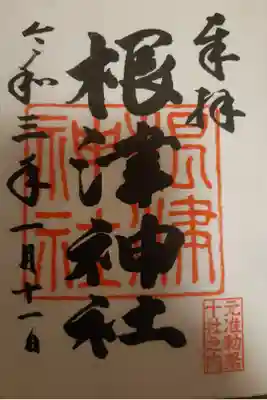 奉拝
元准勅祭
十社之内
根津神社
根津
神社
令和三年一月十一日